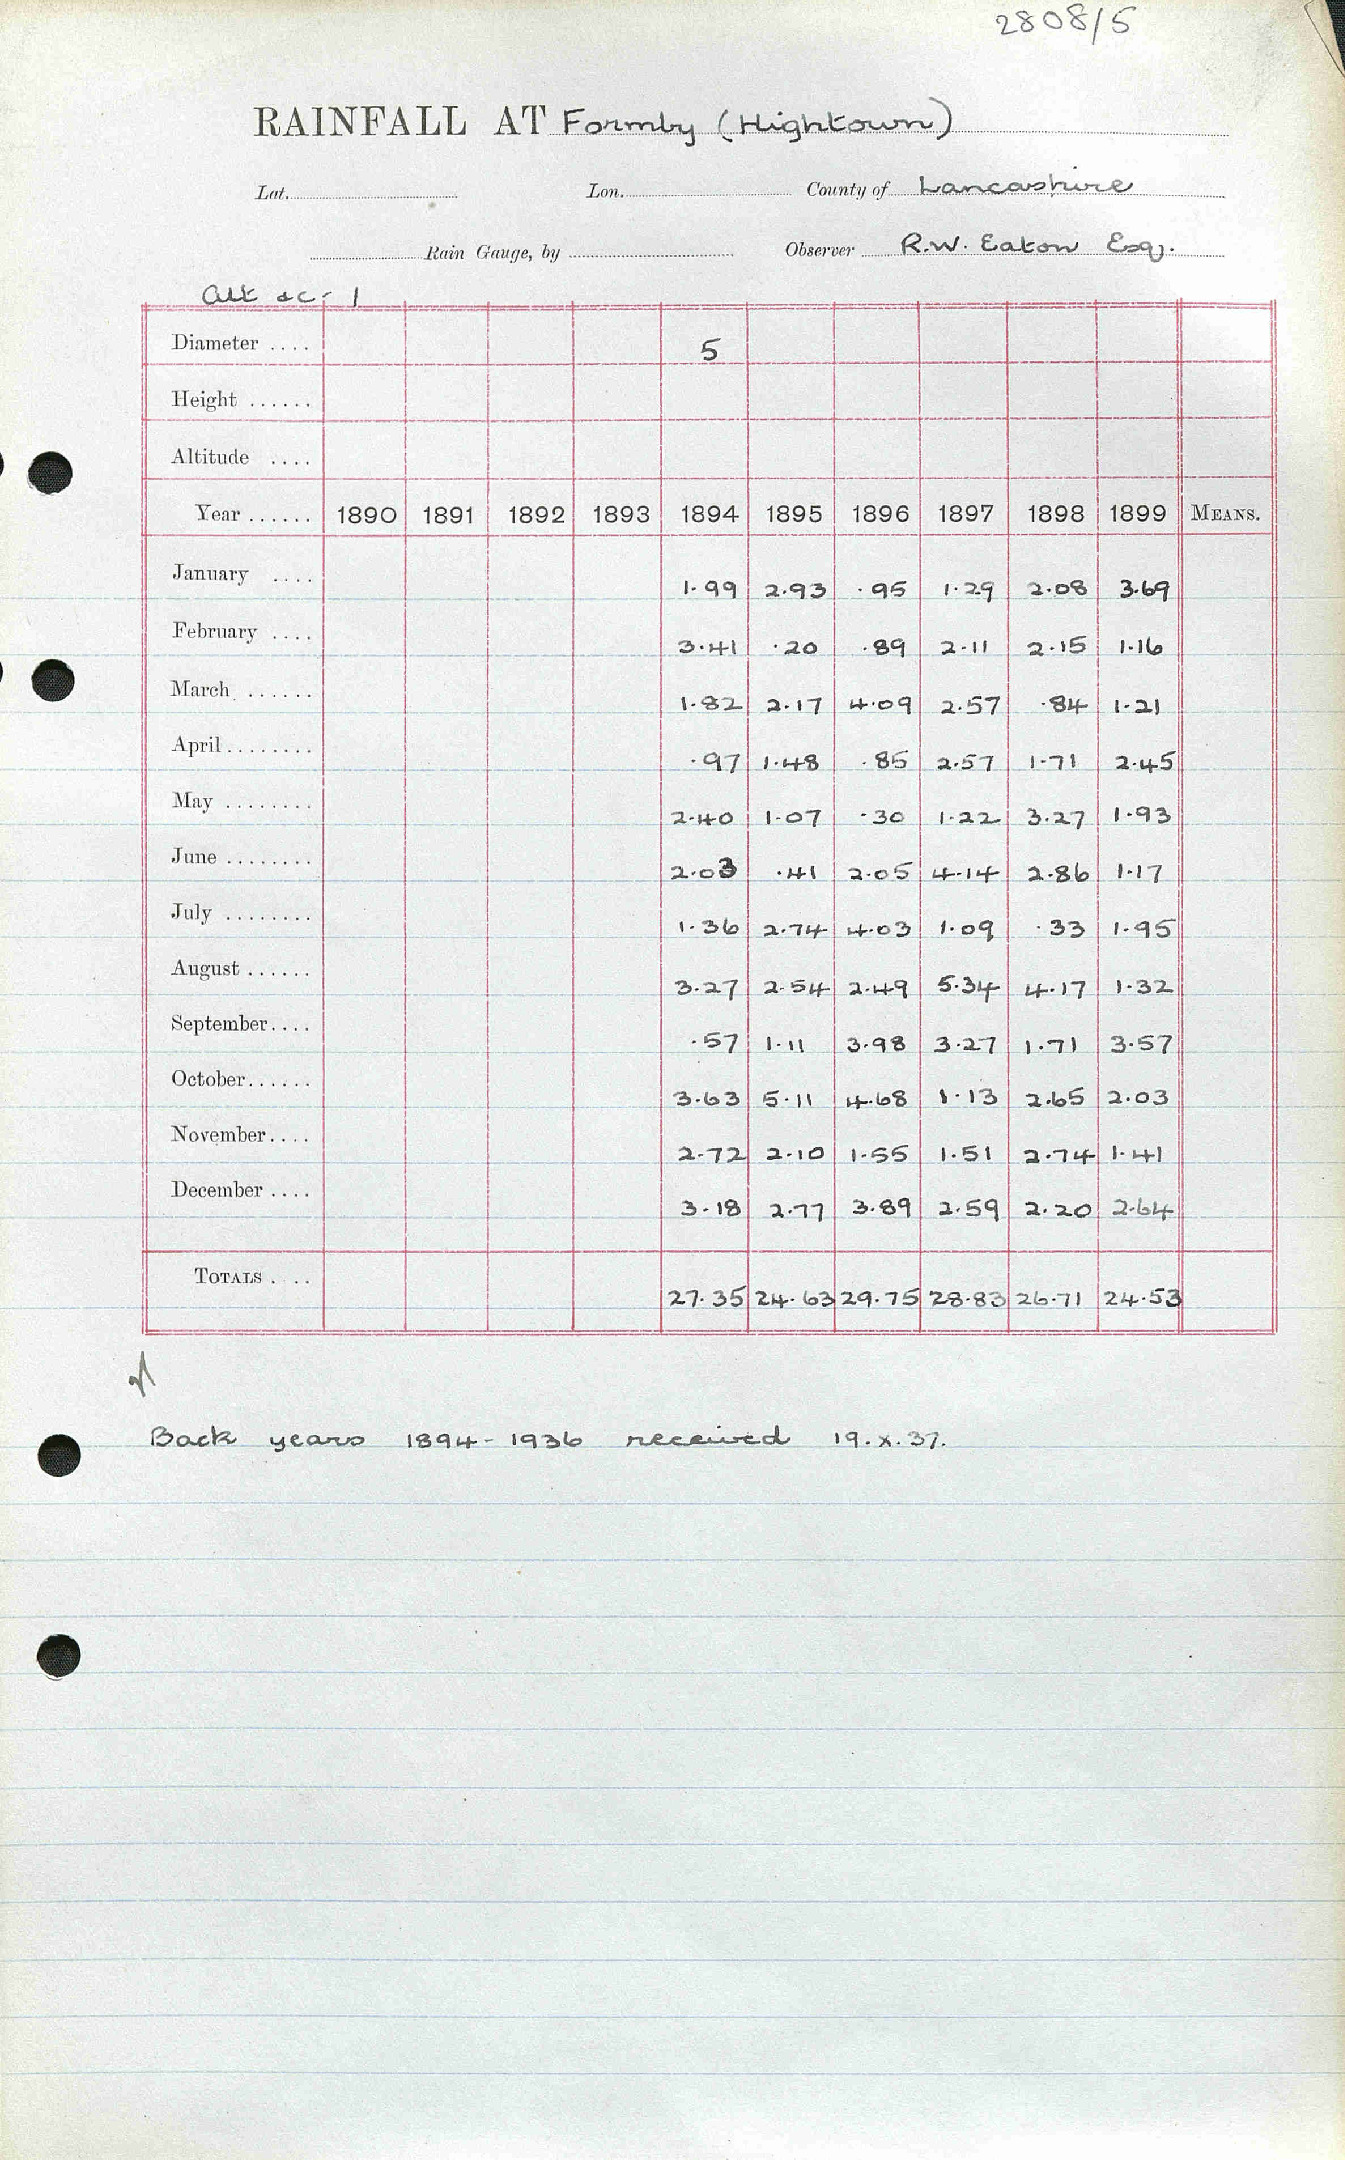 2808/5
RAINFALL AT Formby (Hightown)
Lat. Lon. County of Lancashire
Rain Gauge, by Observer R.W. Eaton Esq.
1
Diameter .... 5
Height ......
Altitude ....
Year ...... 1890 1891 1892 1893 1894 1895 1896 1897 1898 1899 MEANS.
January .... 1.99 2.93 .95 1.29 2.08 3.69
February .... 3.41 .20 .89 2.11 2.15 1.16
March ...... 1.82 2.17 4.09 2.57 .84 1.21
April ........ .97 1.48 .85 2.57 1.71 2.45
May ........ 2.40 1.07 .30 1.22 3.27 1.93
June ........ 2.03 .41 2.05 4.14 2.86 1.17
July ........ 1.36 2.74 4.03 1.09 .33 1.95
August ...... 3.27 2.54 2.49 5.34 4.17 1.32
September.... .57 1.11 3.98 3.27 1.71 3.57
October...... 3.63 5.11 4.68 1.13 2.65 2.03
November.... 2.72 2.10 1.55 1.51 2.74 1.41
December .... 3.18 2.77 3.89 2.59 2.20 2.64
TOTALS .... 27.35 24.63 29.75 28.83 26.71 24.53
Back years 1894-1936 received 19.X.37.